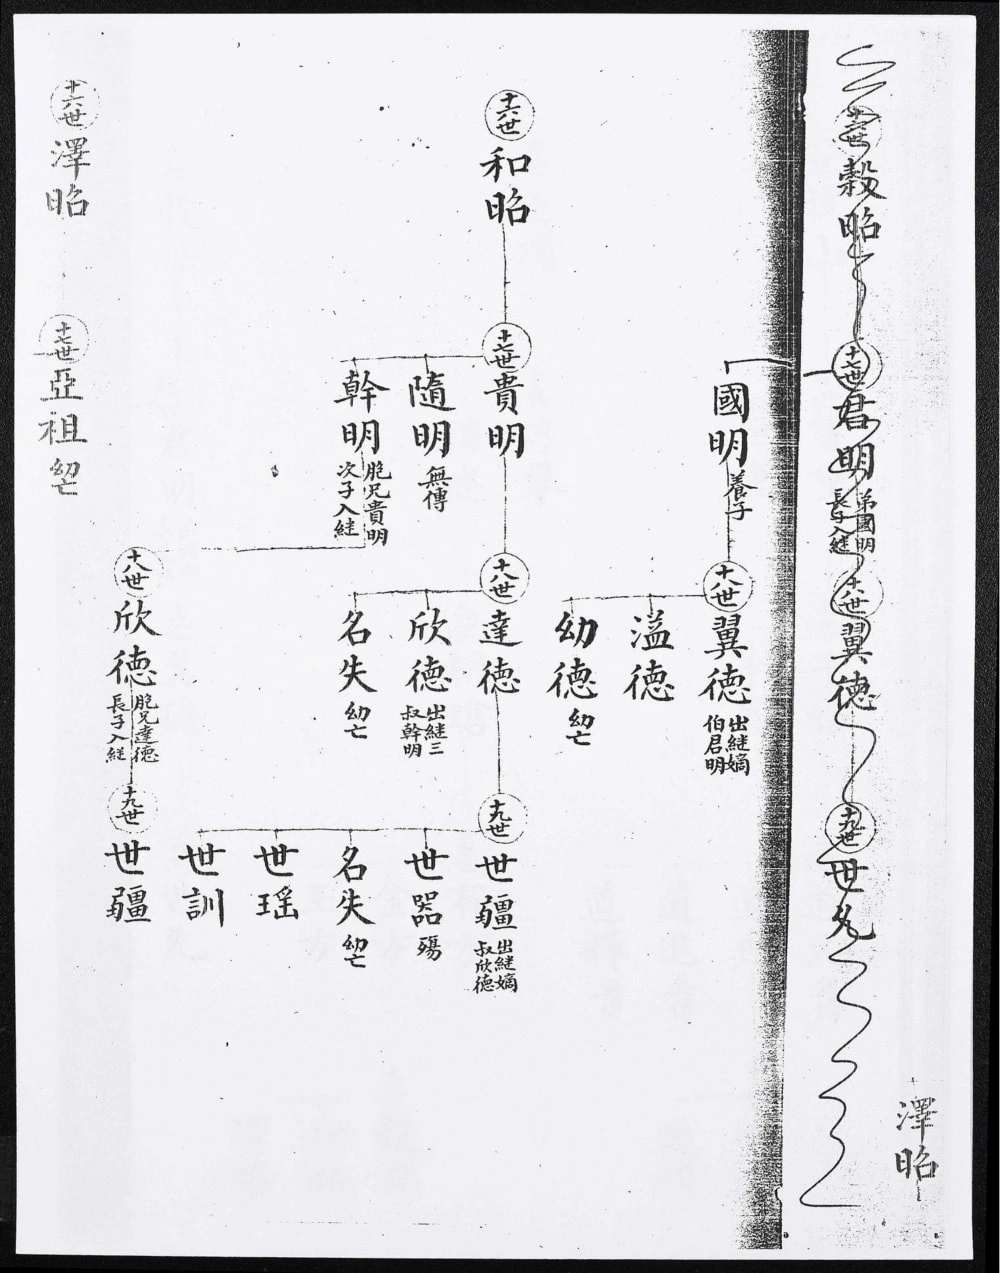 十六世
穀昭
十七世
君明
弟國明
長子入継
十八世
翼德
十九世
世
澤昭
國明
養子
十八世
翼德
出継嫡
伯君明
溢德
幼德
幼亡
十六世
和昭
十七世
貴明
隨明
無傳
幹明
胞兄貴明
次子入継
十八世
達德
欣德
出継三
叔幹明
名失
幼亡
十九世
世疆
出継嫡
叔欣德
世器
殤
名失
幼亡
世瑶
世訓
十八世
欣德
胞兄達德
長子入継
十九世
世疆
十六世
澤昭
十七世
亞祖
幼亡